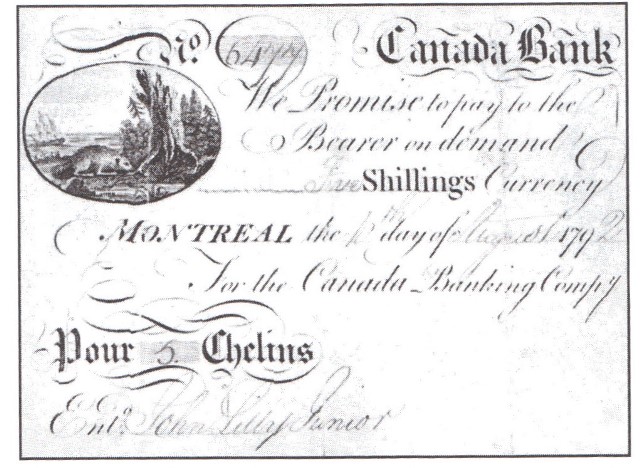 No. Canada Bank
We Promise to pay to the
Bearer on demand
Five Shillings Currency
MONTREAL the 10th day of August 1792
For the Canada Banking Compy
Pour 5. Chelins
Entd. John Lilly Junior